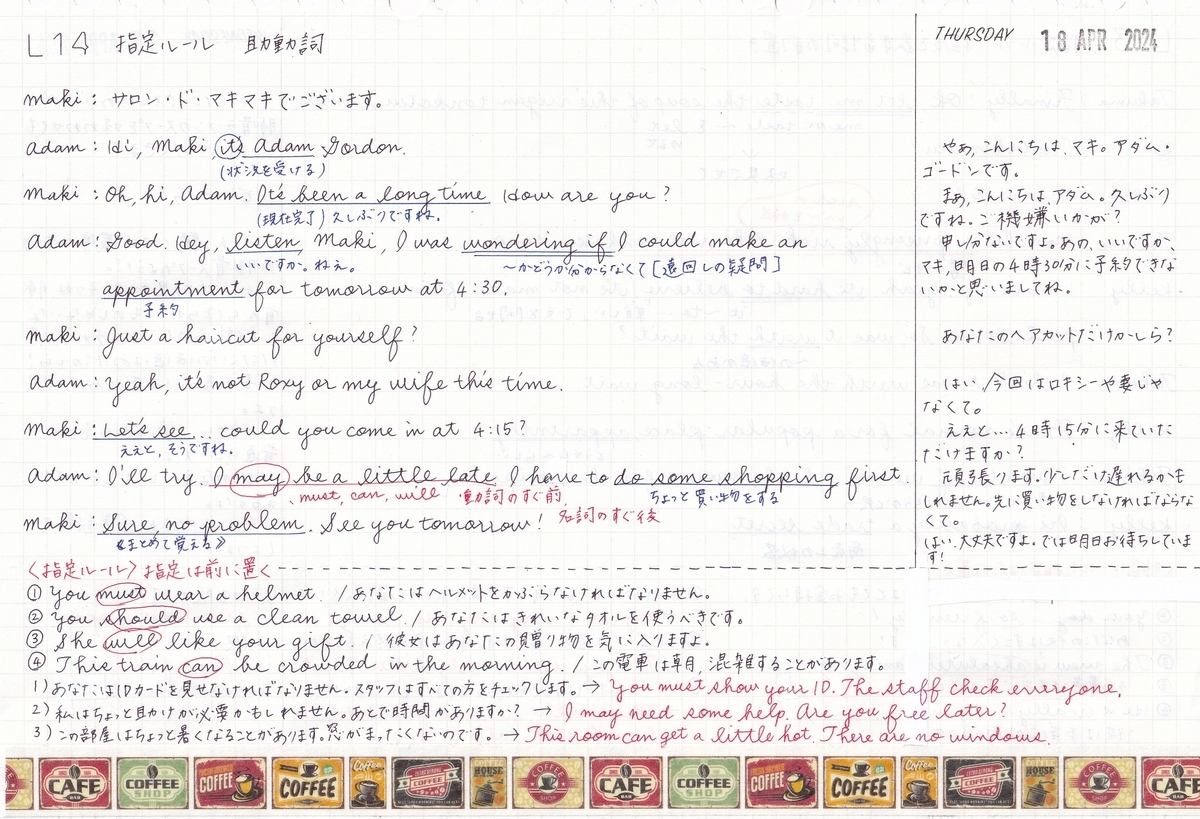 L14 指定ルール 助動詞
THURSDAY 18 APR 2024
maki : サロン・ド・マキマキでございます。
Adam : Hi, Maki, it's Adam Gordon.
(状況を受ける)
maki : Oh, hi, Adam. It's been a long time. How are you?
(現在完了) 久しぶりですね。
Adam : Good. Hey, listen, Maki, I was wondering if I could make an
いいですか。ねぇ。 〜かどうか分からなくて [遠回しの疑問]
appointment for tomorrow at 4:30.
予約
maki : Just a haircut for yourself?
Adam : Yeah, it's not Roxy or my wife this time.
maki : Let's see... could you come in at 4:15?
ええと、そうですね。
Adam : I'll try. I may be a little late. I have to do some shopping first.
must, can, will ・動詞のすぐ前 ちょっと買い物をする
名詞のすぐ後
Maki : Sure, no problem. See you tomorrow!
《まとめて覚える》
やぁ、こんにちは、マキ。アダム・
ゴードンです。
まぁ、こんにちは、アダム。久しぶり
ですね。ご機嫌いかが?
申し分ないですよ。あの、いいですか、
マキ、明日の4時30分に予約できな
いかと思いましてね。
あなたのヘアカットだけかしら?
はい、今回はロキシーや妻じゃ
なくて。
ええと…4時15分に来ていた
だけますか?
頑張ります。少しだけ遅れるかも
しれません。先に買い物をしなければならな
くて。
はい、大丈夫ですよ。では明日お待ちしていま
す!
〈指定ルール〉指定は前に置く
① You must wear a helmet. / あなたはヘルメットをかぶらなければなりません。
② You should use a clean towel. / あなたはきれいなタオルを使うべきです。
③ She will like your gift. / 彼女はあなたの贈り物を気に入りますよ。
④ This train can be crowded in the morning. / この電車は朝、混雑することがあります。
1) あなたはIDカードを見せなければなりません。スタッフはすべての方をチェックします。→ You must show your ID. The staff check everyone.
2) 私はちょっと助けが必要かもしれません。あとで時間がありますか? → I may need some help. Are you free later?
3) この部屋はちょっと暑くなることがあります。窓がまったくないのです。→ This room can get a little hot. There are no windows.
CAFE BAR
COFFEE SHOP
COFFEE
COFFEE
Coffee
COFFEE
HOUSE
COFFEE SHOP
CAFE BAR
COFFEE SHOP
COFFEE
COFFEE
Coffee
COFFEE
HOUSE
COFFEE SHOP